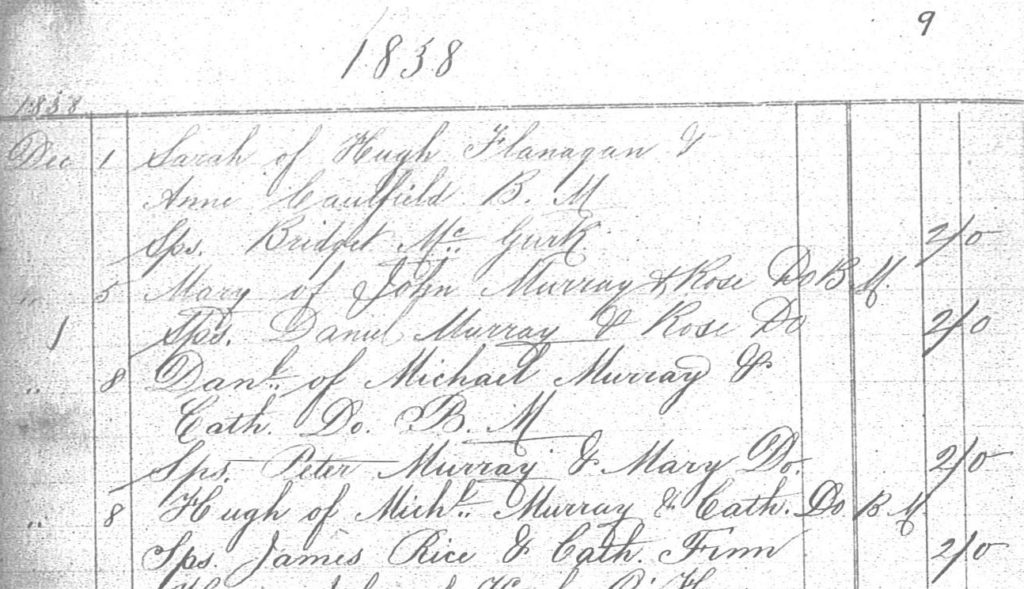 9
1838
1838
Dec 1 Sarah of Hugh Flanagan &
Anne Caulfield B. M
Sps. Bridget Mc Gurk 2/0
" 5 Mary of John Murray & Rose Do B M.
1 Sps. Daniel Murray & Rose Do 2/0
" 8 Danl. of Michael Murray &
Cath. Do. B. M
Sps. Peter Murray & Mary Do. 2/0
" 8 Hugh of Michl. Murray & Cath. Do B M
Sps. James Rice & Cath. Finn 2/0